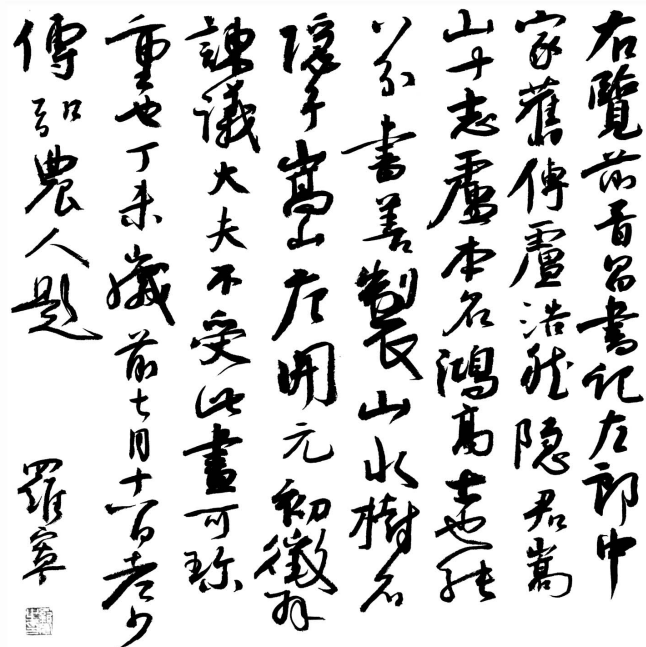 右覽前晉昌書記左郎中
家舊傳盧浩然隱居嵩
山十志盧本名鴻高士也能
八分書善製山水樹石
隱于嵩山唐開元初徵拜
諫議大夫不受此畫可珍
重也丁未歲前七月十八日老少
傅弘農人題
羅寧